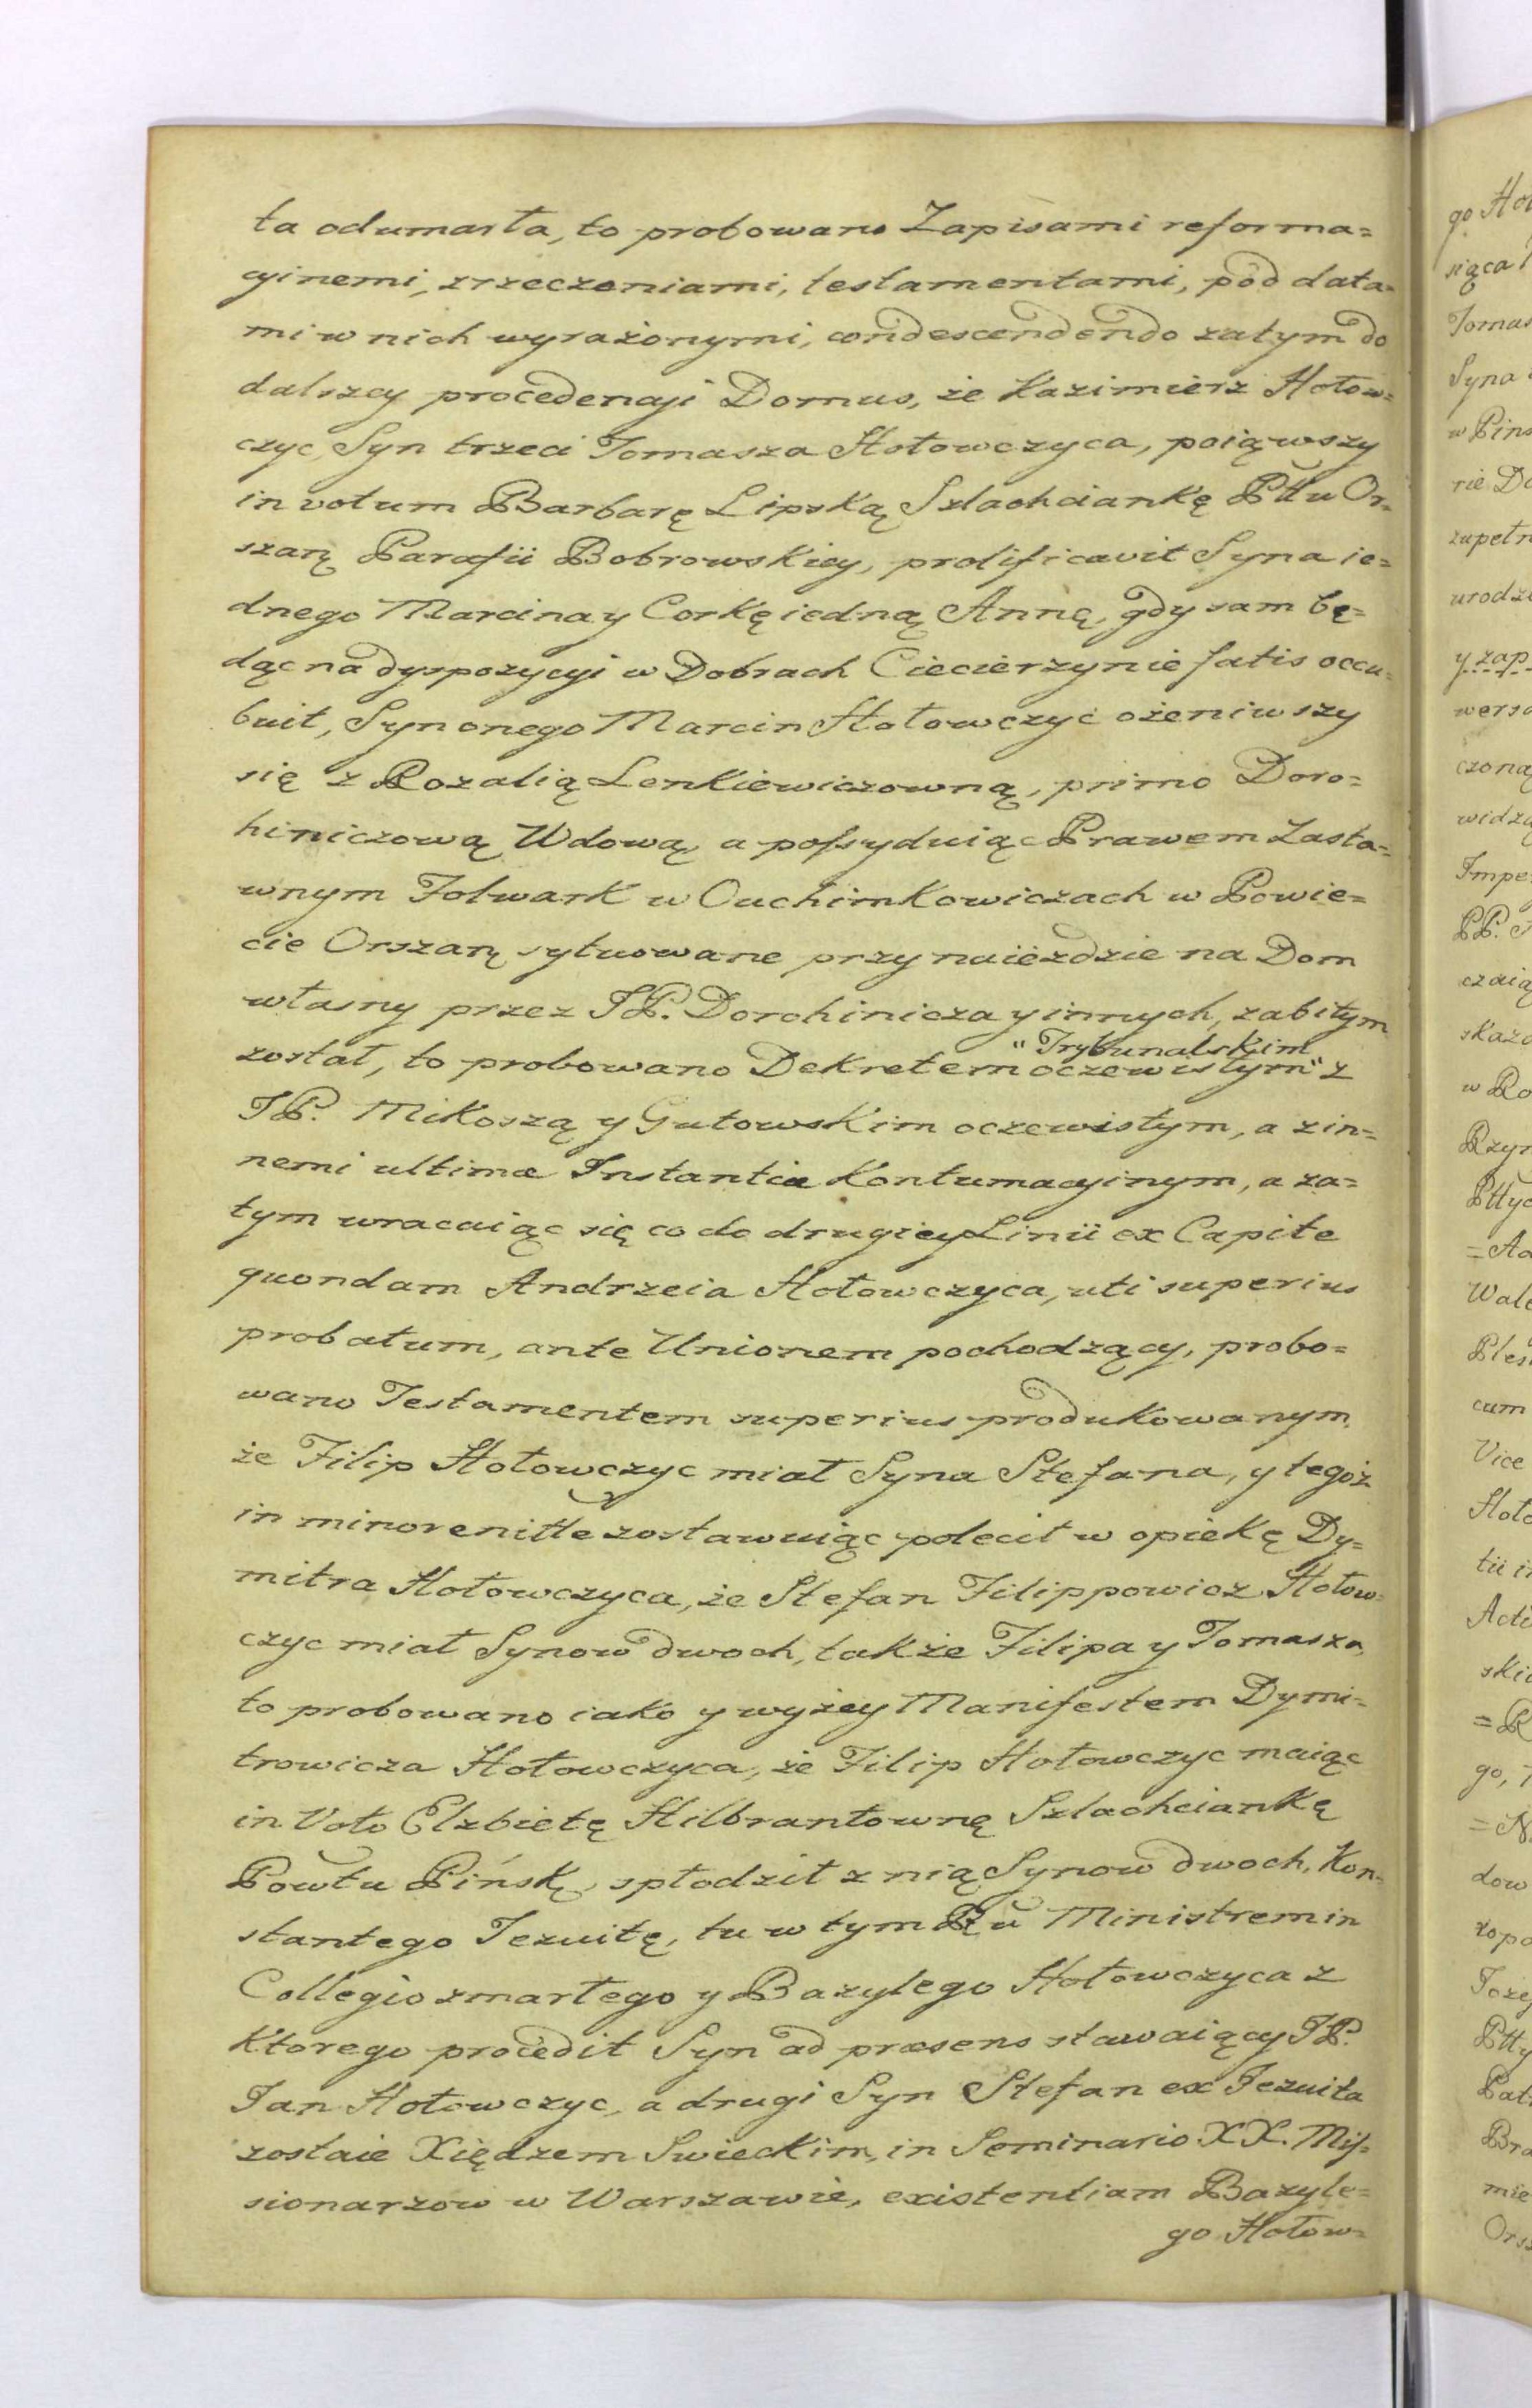 ta odumarła, to probowano Zapisami reforma=
cyinemi, zrzeczeniami, testamentami, pod data=
mi w nich wyrażonymi, condescendendo zatym do
dalszey procedencyi Domus, że Kazimierz Hołow=
czyc, Syn trzeci Tomasza Hołowczyca, poiąwszy
in votum Barbarę Lipską Szlachciankę Pttu Or=
szaņ Parafii Bobrowskiey, prolificavit Syna ie=
dnego Marcina y Corkę iedną Annę, gdy sam bę=
dąc na dyspozycyi w Dobrach Ciecierzynie fatis occu=
buit, Syn onego Marcin Hołowczyc ożeniwszy
się z Rozalią Lenkiewiczowną, primo Doro=
hiniczową Wdową, a possyduiąc Prawem Zasta=
wnym Folwark w Cuchimkowiczach w Powie=
cie Orszaņ sytuowane przy naieździe na Dom
własny przez JP. Dorohinicza y innych, zabitym
został, to probowano Dekretem "Trybunalskim oczewistym" z
JP. Mikoszą y Gutowskim oczewistym, a z in=
nemi ultimæ Instantiæ Kontumacyinym, a za=
tym wracaiąc się co do drugiey Linii ex Capite
quondam Andrzeia Hołowczyca, uti superius
probatum, ante Unionem pochodzący, probo=
wano Testamentem superius produkowanym,
że Filip Hołowczyc miał Syna Stefana, y tegoż
in minorenitte zostawuiąc polecił w opiekę Dy=
mitra Hołowczyca, że Stefan Filippowicz Hołow=
czyc miał Synow dwoch, także Filipa y Tomasza,
to probowano iako y wyżey Manifestem Dymi=
trowicza Hołowczyca, że Filip Hołowczyc maiąc
in Voto Elzbietę Hilbrantownę Szlachciankę
Powtu Pińsķ, spłodził z nią Synow dwoch, Kon=
stantego Jezuitę, tu w tym Ru Ministrem in
Collegio zmarłego y Bazylego Hołowczyca z
Ktorego procedit Syn ad præsens stawaiący JP.
Jan Hołowczyc, a drugi Syn Stefan ex Jezuita
zostaie Xiędzem Swieckim, in Seminario XX. Mis=
sionarzow w Warszawie, existentiam Bazyle=
go Hołow=